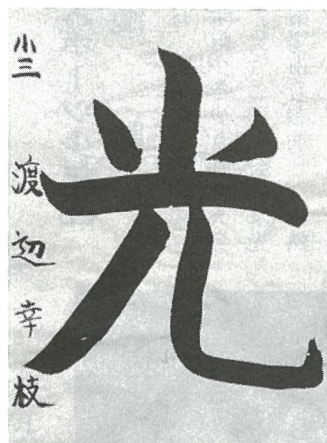 光
小三 渡辺幸枝